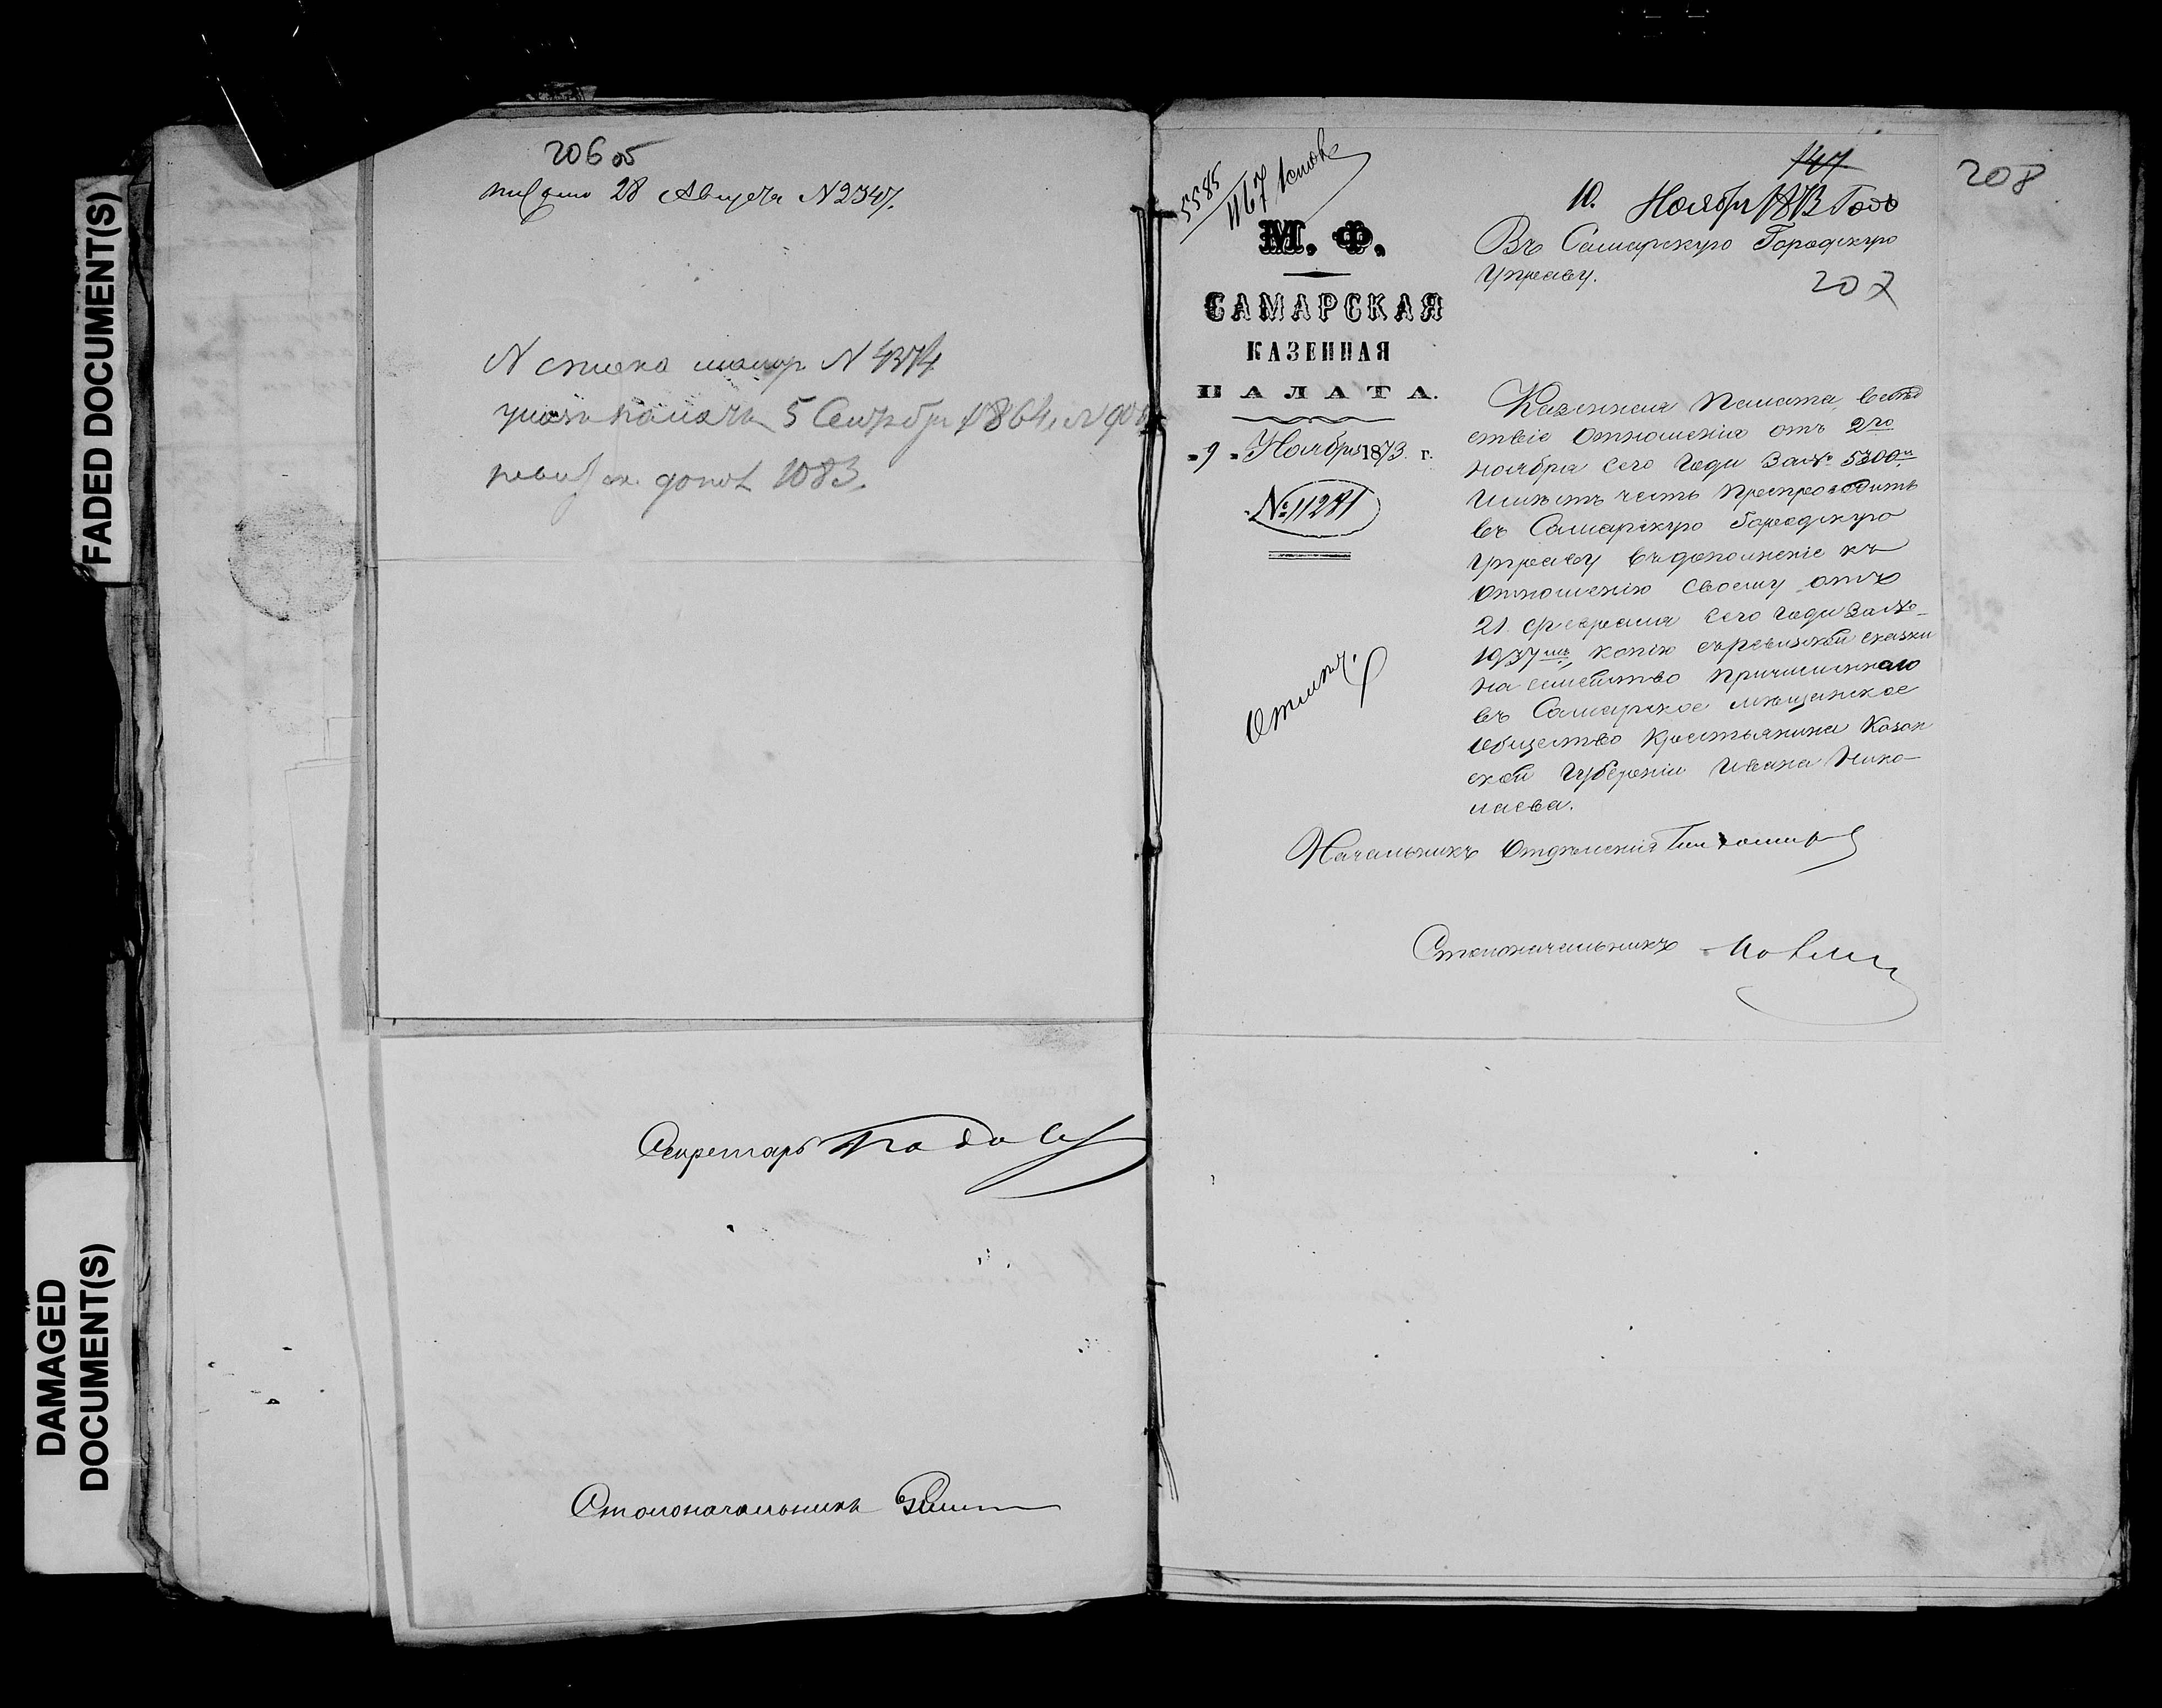 FADED DOCUMENT(S)
DAMAGED
DOCUMENT(S)
206 об
28 Августа N 2347.
N списка N 4374
указъ палаты 5 Сентябр 1864,
ревиз ск. допол 1083.
Секретарь
Столоначальникъ
5585
1167
147
208
10. Ноября 1873 Года
М. Ф.
САМАРСКАЯ
КАЗЕННАЯ
ПАЛАТА.
"9" Ноября 1873 г.
№ 11281
Въ Самарскую Городскую
Управу.
207
Казенная Палата, вслѣд
ствіе отношенія отъ 2го
ноября сего года За № 5300м
имѣетъ честь препроводить
въ Самарскую Городскую
Управу въ дополненіе къ
отношенію своему отъ
21 февраля сего года За №
1937мъ, копію съ ревизской сказки
на семейство причисленнаго
въ Самарское мѣщанское
общество Крестьянина Казан
ской Губерніи Ивана Нико-
лаева.
Начальникъ Отдѣленія Тихомиров
Столоначальникъ